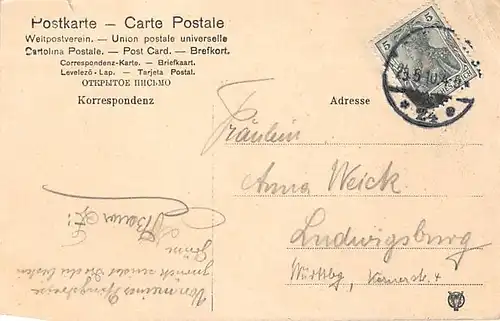 Postkarte – Carte Postale
Weltpostverein. – Union postale universelle
Cartolina Postale. – Post Card. – Brefkort.
Correspondenz-Karte. – Briefkaart.
Levelező-Lap. – Tarjeta Postal.
ОТКРЫТОЕ ПИСЬМО
Korrespondenz
Adresse
5 5
10.4
24
Fräulein
Anna Weick
Ludwigsburg
Württbg,
Von meiner
sendet Dir die besten
Grüße